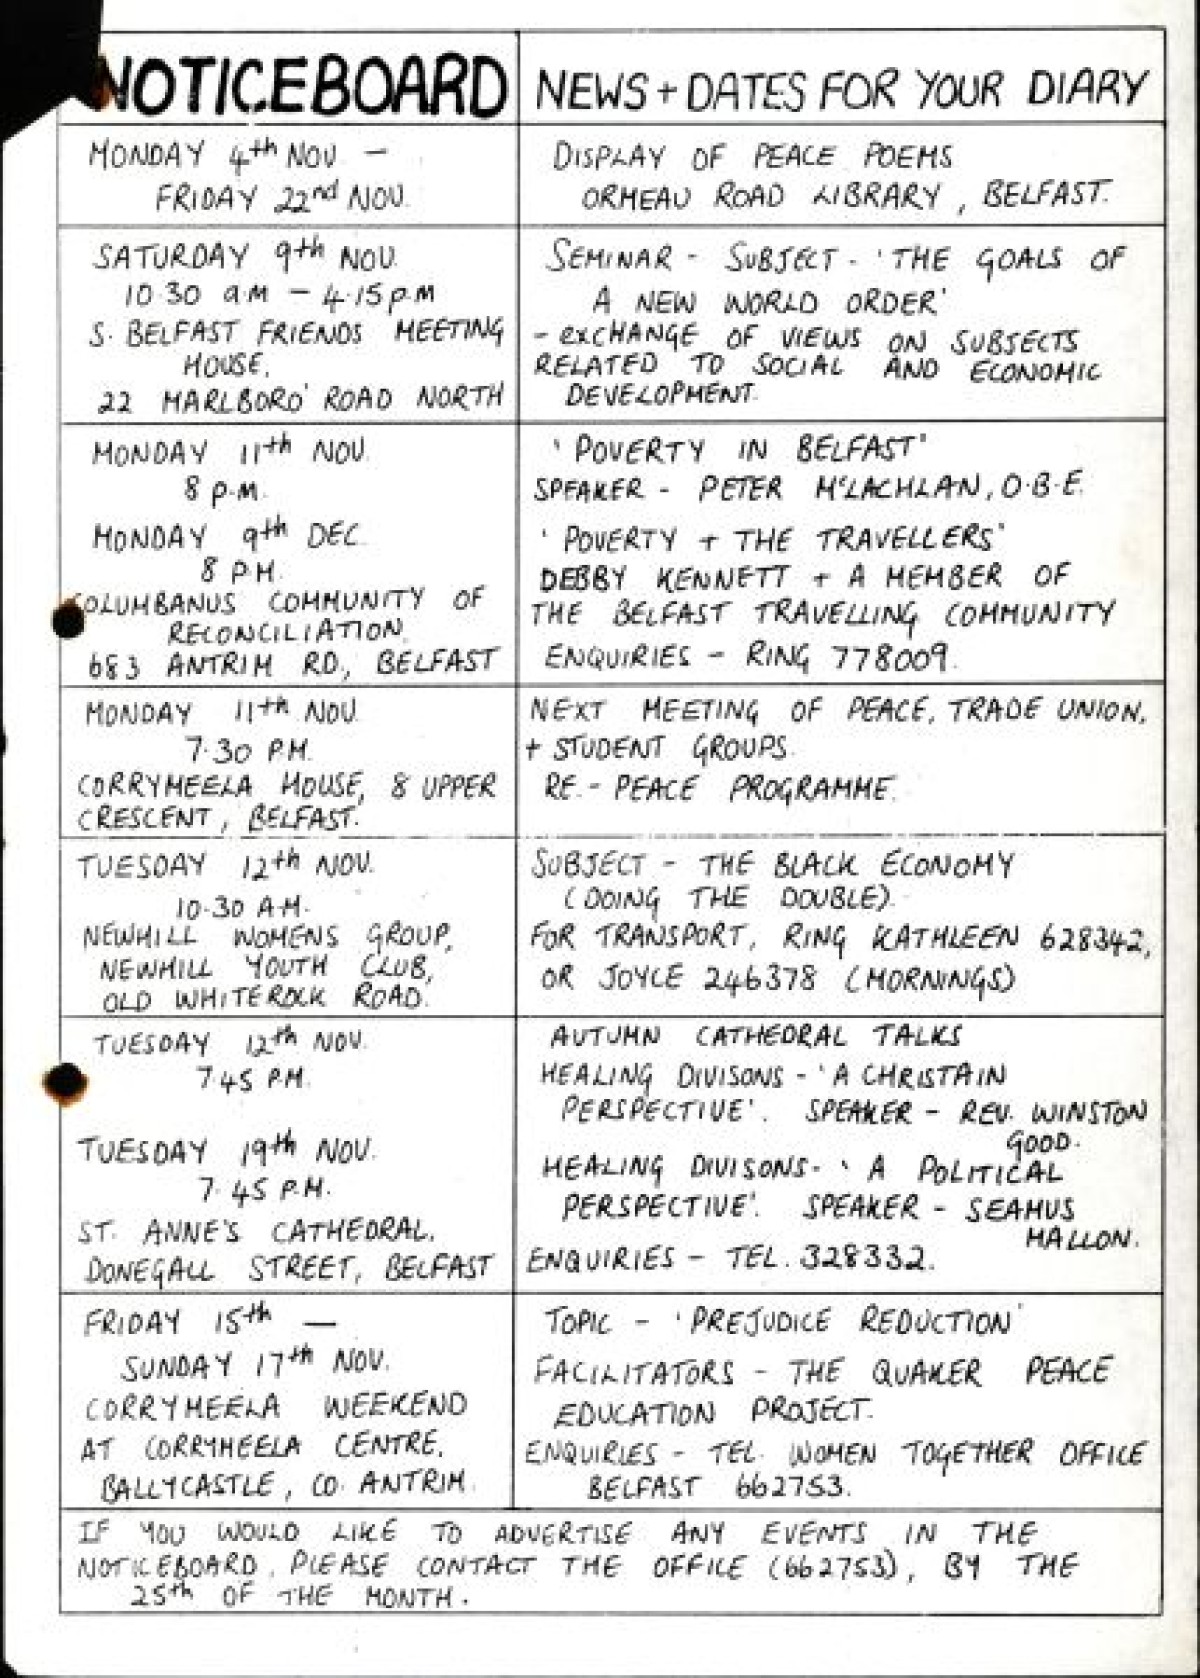 NOTICEBOARD
NEWS + DATES FOR YOUR DIARY
MONDAY 4th NOV. –
FRIDAY 22nd NOV.
DISPLAY OF PEACE POEMS
ORMEAU ROAD LIBRARY, BELFAST.
SATURDAY 9th NOV.
10.30 a.M – 4.15 p.M
S. BELFAST FRIENDS MEETING
HOUSE,
22 MARLBORO' ROAD NORTH
SEMINAR - SUBJECT - 'THE GOALS OF
A NEW WORLD ORDER'
- EXCHANGE OF VIEWS ON SUBJECTS
RELATED TO SOCIAL AND ECONOMIC
DEVELOPMENT.
MONDAY 11th NOV.
8 P.M.
MONDAY 9th DEC.
8 P.M.
COLUMBANUS COMMUNITY OF
RECONCILIATION.
683 ANTRIM RD., BELFAST
'POVERTY IN BELFAST'
SPEAKER - PETER McLACHLAN, O.B.E.
'POVERTY + THE TRAVELLERS'
DEBBY KENNETT + A MEMBER OF
THE BELFAST TRAVELLING COMMUNITY
ENQUIRIES - RING 778009.
MONDAY 11th NOV.
7.30 P.M.
CORRYMEELA HOUSE, 8 UPPER
CRESCENT, BELFAST.
NEXT MEETING OF PEACE, TRADE UNION,
+ STUDENT GROUPS.
RE. - PEACE PROGRAMME.
TUESDAY 12th NOV.
10.30 A.M.
NEWHILL WOMENS GROUP,
NEWHILL YOUTH CLUB,
OLD WHITEROCK ROAD.
SUBJECT - THE BLACK ECONOMY
(DOING THE DOUBLE).
FOR TRANSPORT, RING KATHLEEN 628342,
OR JOYCE 246378 (MORNINGS)
TUESDAY 12th NOV.
7.45 P.M.
TUESDAY 19th NOV.
7.45 P.M.
ST. ANNE'S CATHEDRAL,
DONEGALL STREET, BELFAST
AUTUMN CATHEDRAL TALKS
HEALING DIVISONS - 'A CHRISTAIN
PERSPECTIVE'. SPEAKER - REV. WINSTON
GOOD.
HEALING DIVISONS - 'A POLITICAL
PERSPECTIVE'. SPEAKER - SEAMUS
MALLON.
ENQUIRIES - TEL. 328332.
FRIDAY 15th —
SUNDAY 17th NOV.
CORRYMEELA WEEKEND
AT CORRYMEELA CENTRE,
BALLYCASTLE, CO. ANTRIM.
TOPIC - 'PREJUDICE REDUCTION'
FACILITATORS - THE QUAKER PEACE
EDUCATION PROJECT.
ENQUIRIES - TEL. WOMEN TOGETHER OFFICE
BELFAST 662753.
IF YOU WOULD LIKE TO ADVERTISE ANY EVENTS IN THE
NOTICEBOARD, PLEASE CONTACT THE OFFICE (662753), BY THE
25th OF THE MONTH.